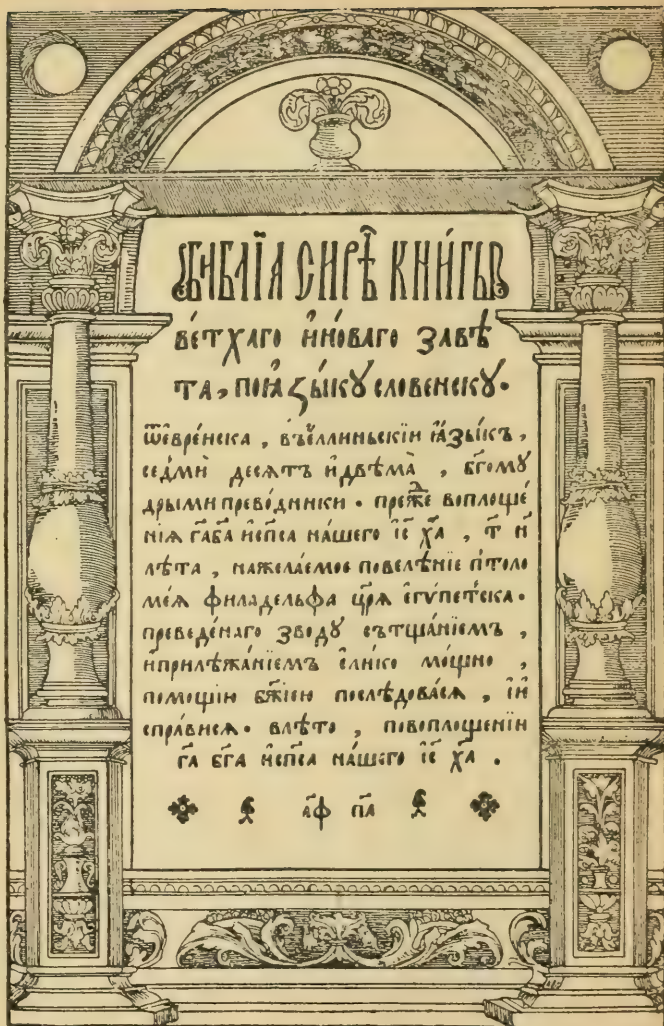 БИ́БЛЇА СИРѢ̑ КНИ́ГЫ
ВЕ́ТХАГО И҆НО́ВАГО ЗАВѢ́
ТА, ПОꙖ҆ЗЫ́КꙊ СЛОВЕНСКꙊ.
ѿєвре́нска , въє҆ллиньскїи ꙗ҆зы́къ ,
се́дми́ десѧтъ и҆двѣма̀ , бг҃омꙋ
дрыми прево́дники . пре́жⷣе воплоще́
нїѧ гⷭ҇а бг҃а и҆сп҃са на́шего і҆с҃ хⷭ҇а , т҃ и҆
лѣта , нажела́емое повелѣ́нїе п̾толо
ме́ѧ филаде́льфа цр҃ѧ є҆гѵ́петска .
преведе́наго зводꙋ сътща́нїемъ ,
и҆прилѣжа́нїемъ є҆ли́ко мо́щно ,
помощїю бж҃їею послѣ́дова́сѧ , і҆и
спра́висѧ . влѣ́то , повоплоще́нїи
гⷭ҇а бг҃а и҆сп҃са на́шего і҆с҃ хⷭ҇а .
҂аф па